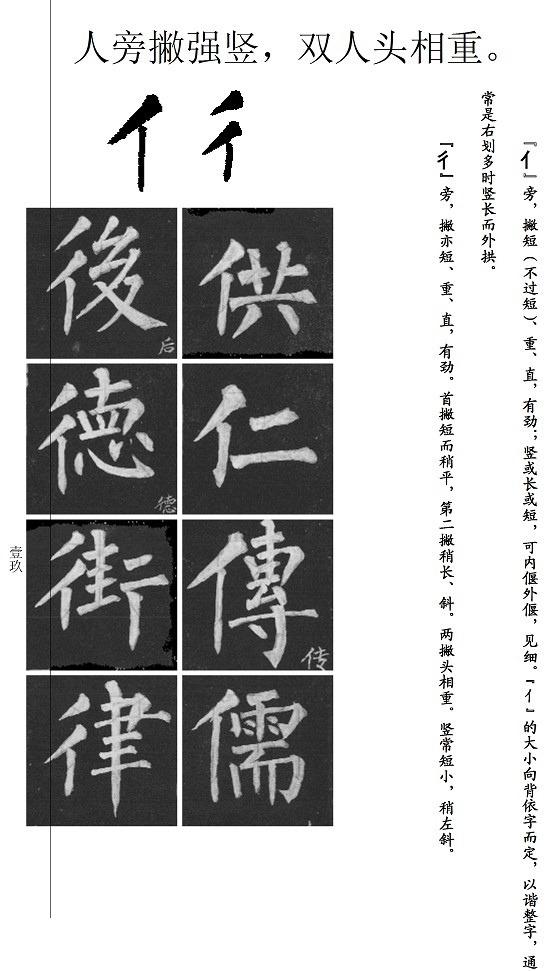 人旁撇强竖，双人头相重。
亻彳
『亻』旁，撇短（不过短）、重、直，有劲；竖或长或短，可内偃外偃，见细。『亻』的大小向背依字而定，以谐整字，通
常是右划多时竖长而外拱。
『彳』旁，撇亦短、重、直，有劲。首撇短而稍平，第二撇稍长、斜。两撇头相重。竖常短小，稍左斜。
供
仁
傳
传
儒
後
后
德
德
街
律
壹玖